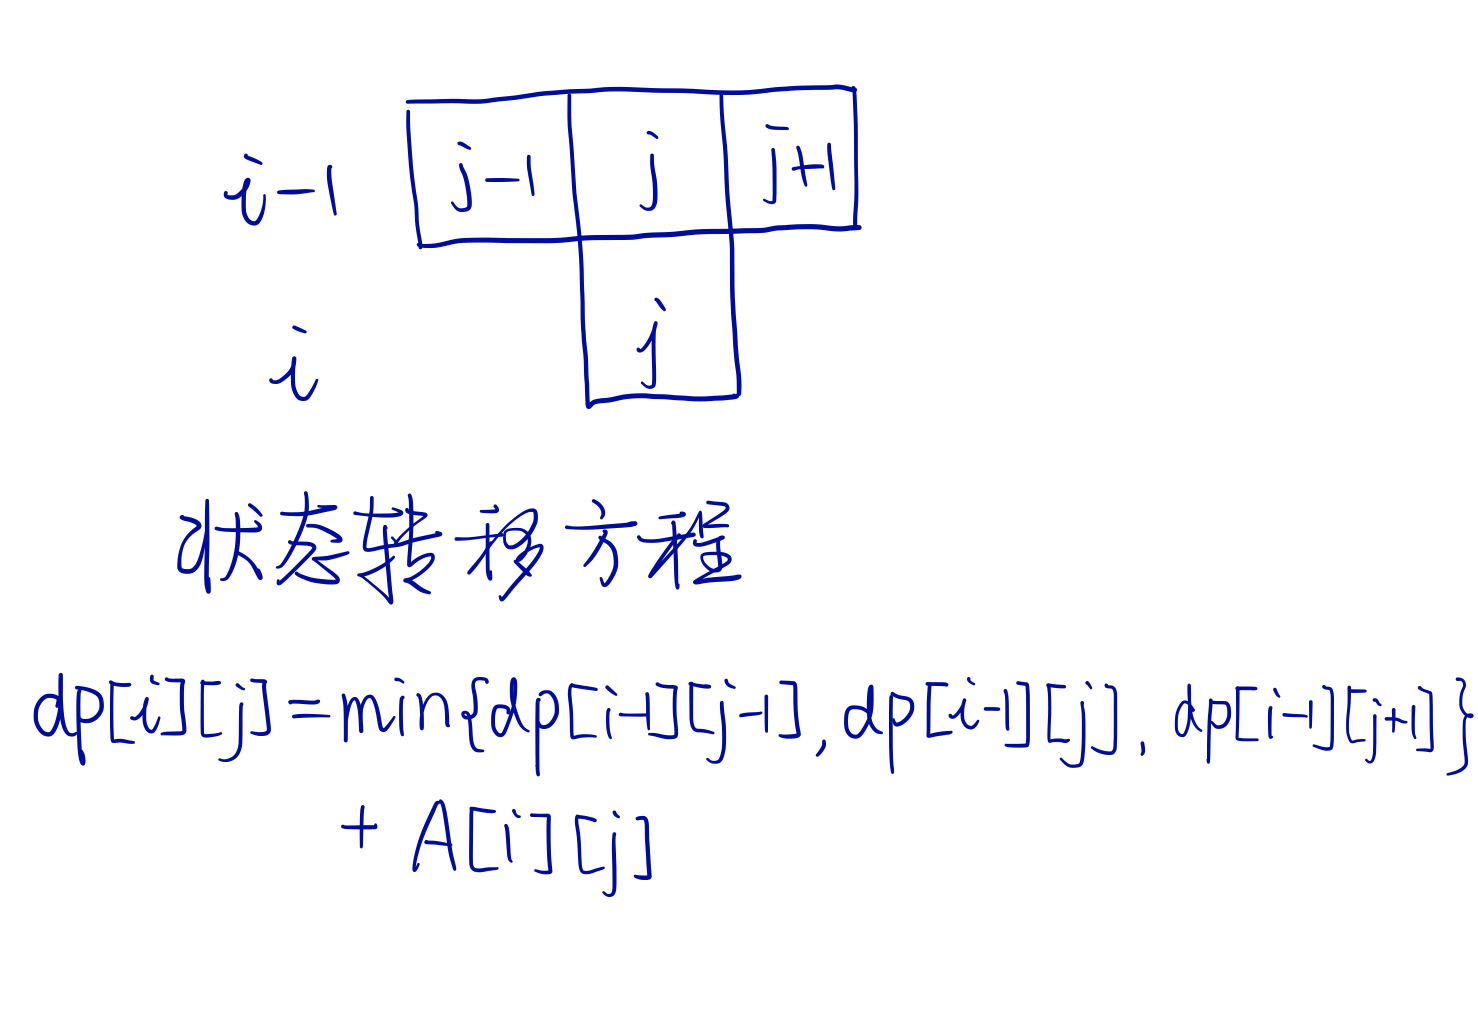 i-1 j-1 j j+1
i j
状态转移方程
dp[i][j]=min{dp[i-1][j-1],dp[i-1][j],dp[i-1][j+1]}
+ A[i][j]